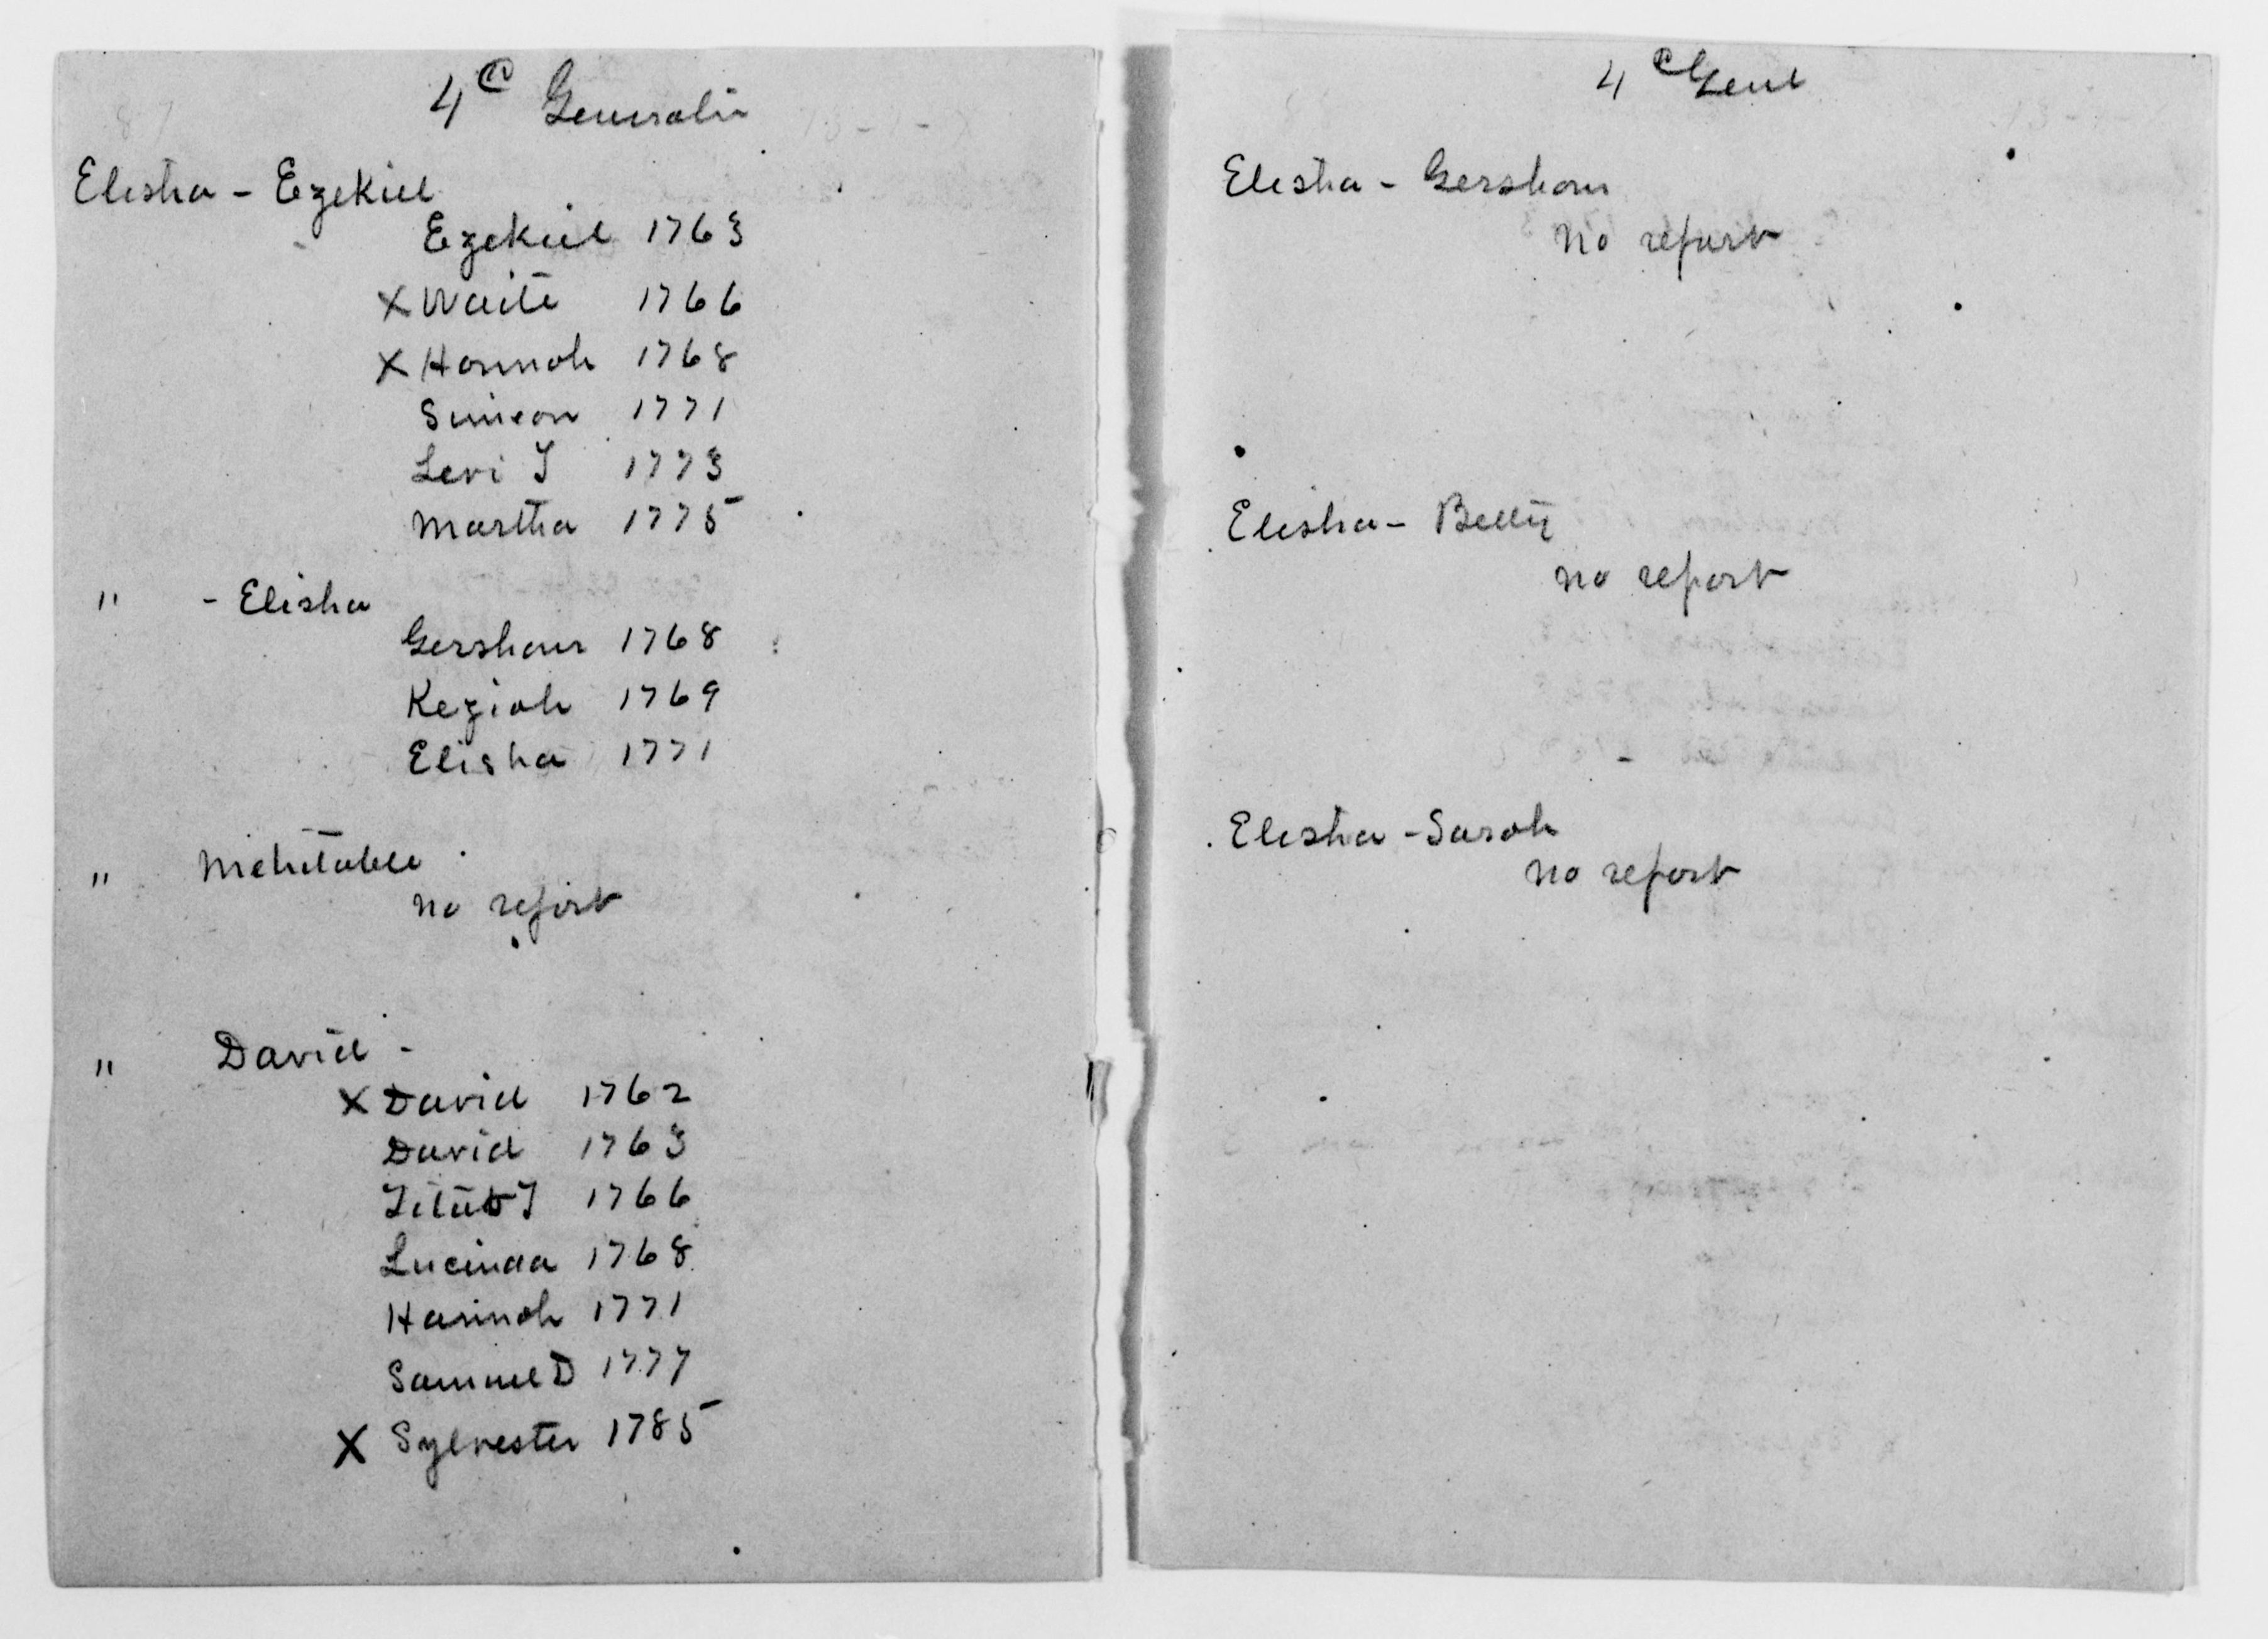 4th Generatin
Elisha - Ezekiel
Ezekiel 1763
X Waite 1766
X Hannah 1768
Simeon 1771
Levi J 1773
Martha 1775
" - Elisha
Gershom 1768
Keziah 1769
Elisha 1771
" Mehitable
no report
" David -
X David 1762
David 1763
Titus J 1766
Lucinda 1768
Hannah 1771
Samuel D 1777
X Sylvester 1785
4th Genl
Elisha - Gershom
no report
Elisha - Betty
no report
Elisha - Sarah
no report